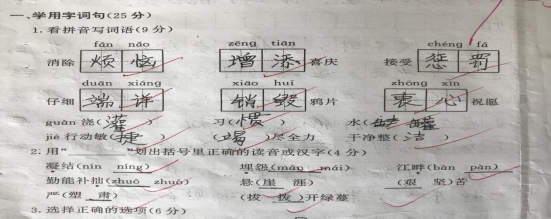 一、学用字词句(25分)
1.看拼音写词语(9分)
fán nǎo zēng tiān chéng fá
消除 烦恼 增添 喜庆 接受 惩罚
duān xiáng xiāo huǐ zhōng xīn
仔细 端详 销毁 鸦片 衷心 祝愿
guàn浇(灌) 习(惯) 水(罐)
jié行动敏(捷) (竭)尽全力 干净整(洁)
2.用" "划出括号里正确的读音或汉字(4分)
凝结(nín níng) 埋怨(mán mái) 江畔(bàn pàn)
勤能补拙(zhuō zhuó) 悬(崖 涯) (艰 坚)苦
严(塑 肃) (拔 拨)开绿蔓
3.选择正确的选项(6分)